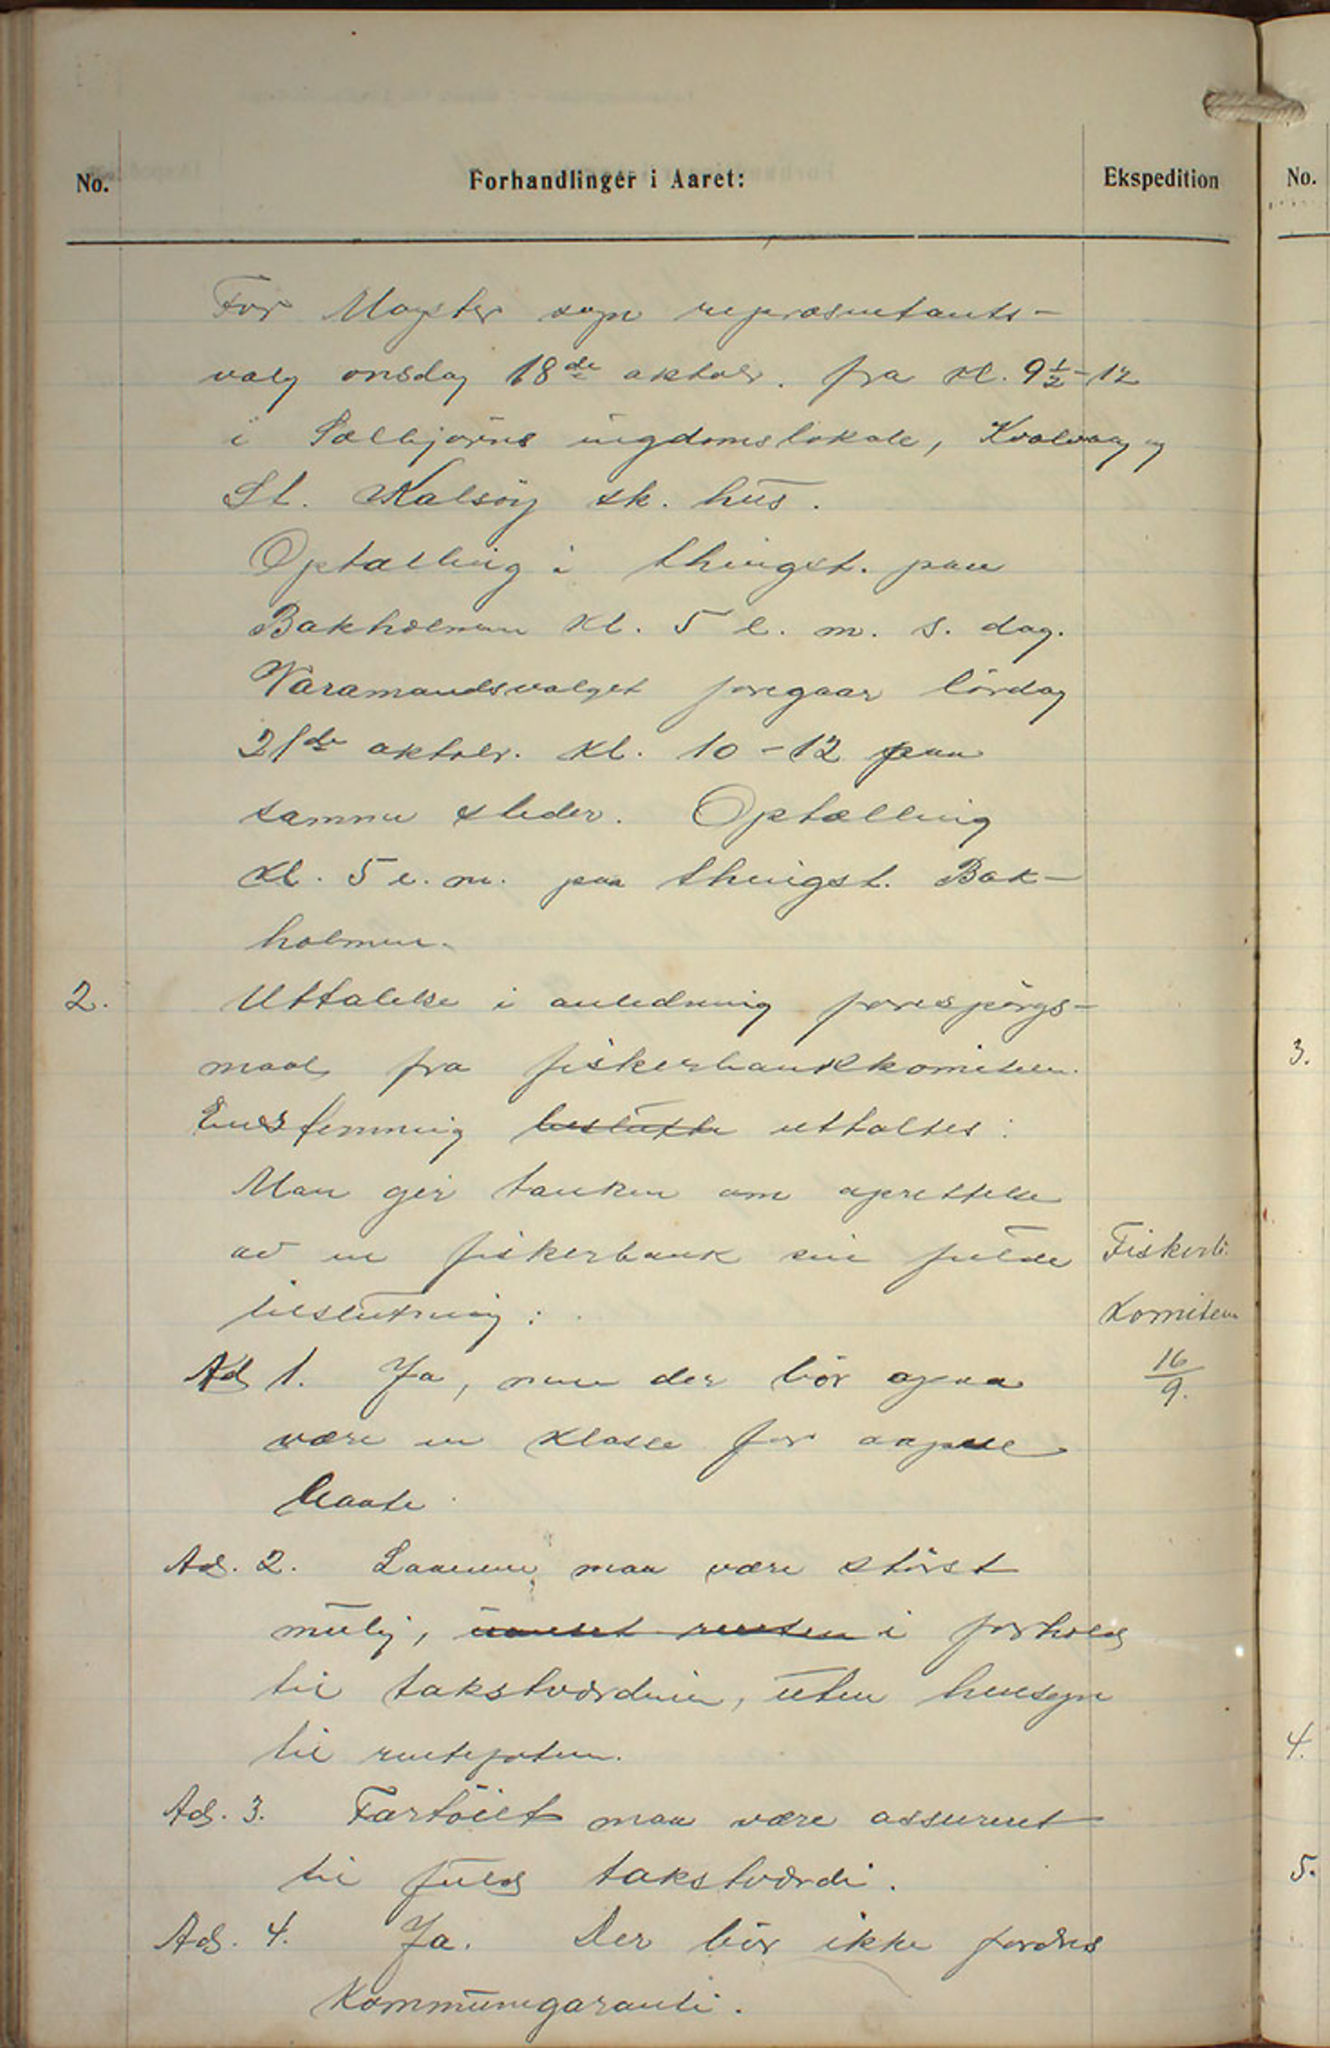 No.
Forhandlinger i Aaret:
Ekspedition
No.
For Møgster sogn repræsentants-
valg onsdag 18de oktobr. fra kl. 9 1/2 - 12
i Sælbjørns ungdomslokale, Kvalvaag og
St. Kalsøy sk. hus.
Optælling i thingst. paa
Bakholmen kl. 5 e. m. s. dag.
Varamandsvalget foregaar lördag
21de oktobr. kl. 10 - 12 paa
samme steder. Optælling
kl. 5 e. m. paa thingst. Bak-
holmen.
2. Uttalelse i anledning forespörgs-
maal fra fiskerbankkomiteen.
Enstemmig beslutte uttaltes:
Man gir tanken om oprettelse
av en fiskerbank sin fulde
tilslutning:
Fiskerb.
Komiteen
16/9.
Ad 1. Ja, men der bör ogsaa
være en klasse for aapne
baate.
Ad. 2. Laanene maa være störst
mulig, uanset renten i forhold
til takstværdien, uten hensyn
til rentefoten.
Ad. 3. Fartöiet maa være assureret
til fuld takstværdi.
Ad. 4. Ja. Der bör ikke fordres
kommunegaranti.
3.
4.
5.